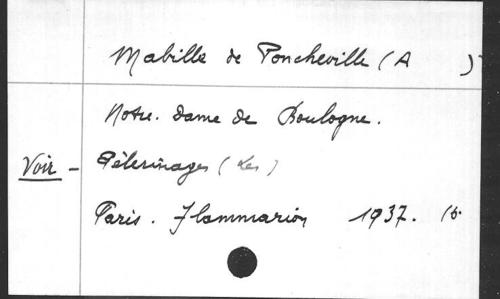 Mabille de Poncheville (A )
Notre. Dame de Boulogne.
Voir - Pèlerinages (Les)
Paris. Flammarion 1937.